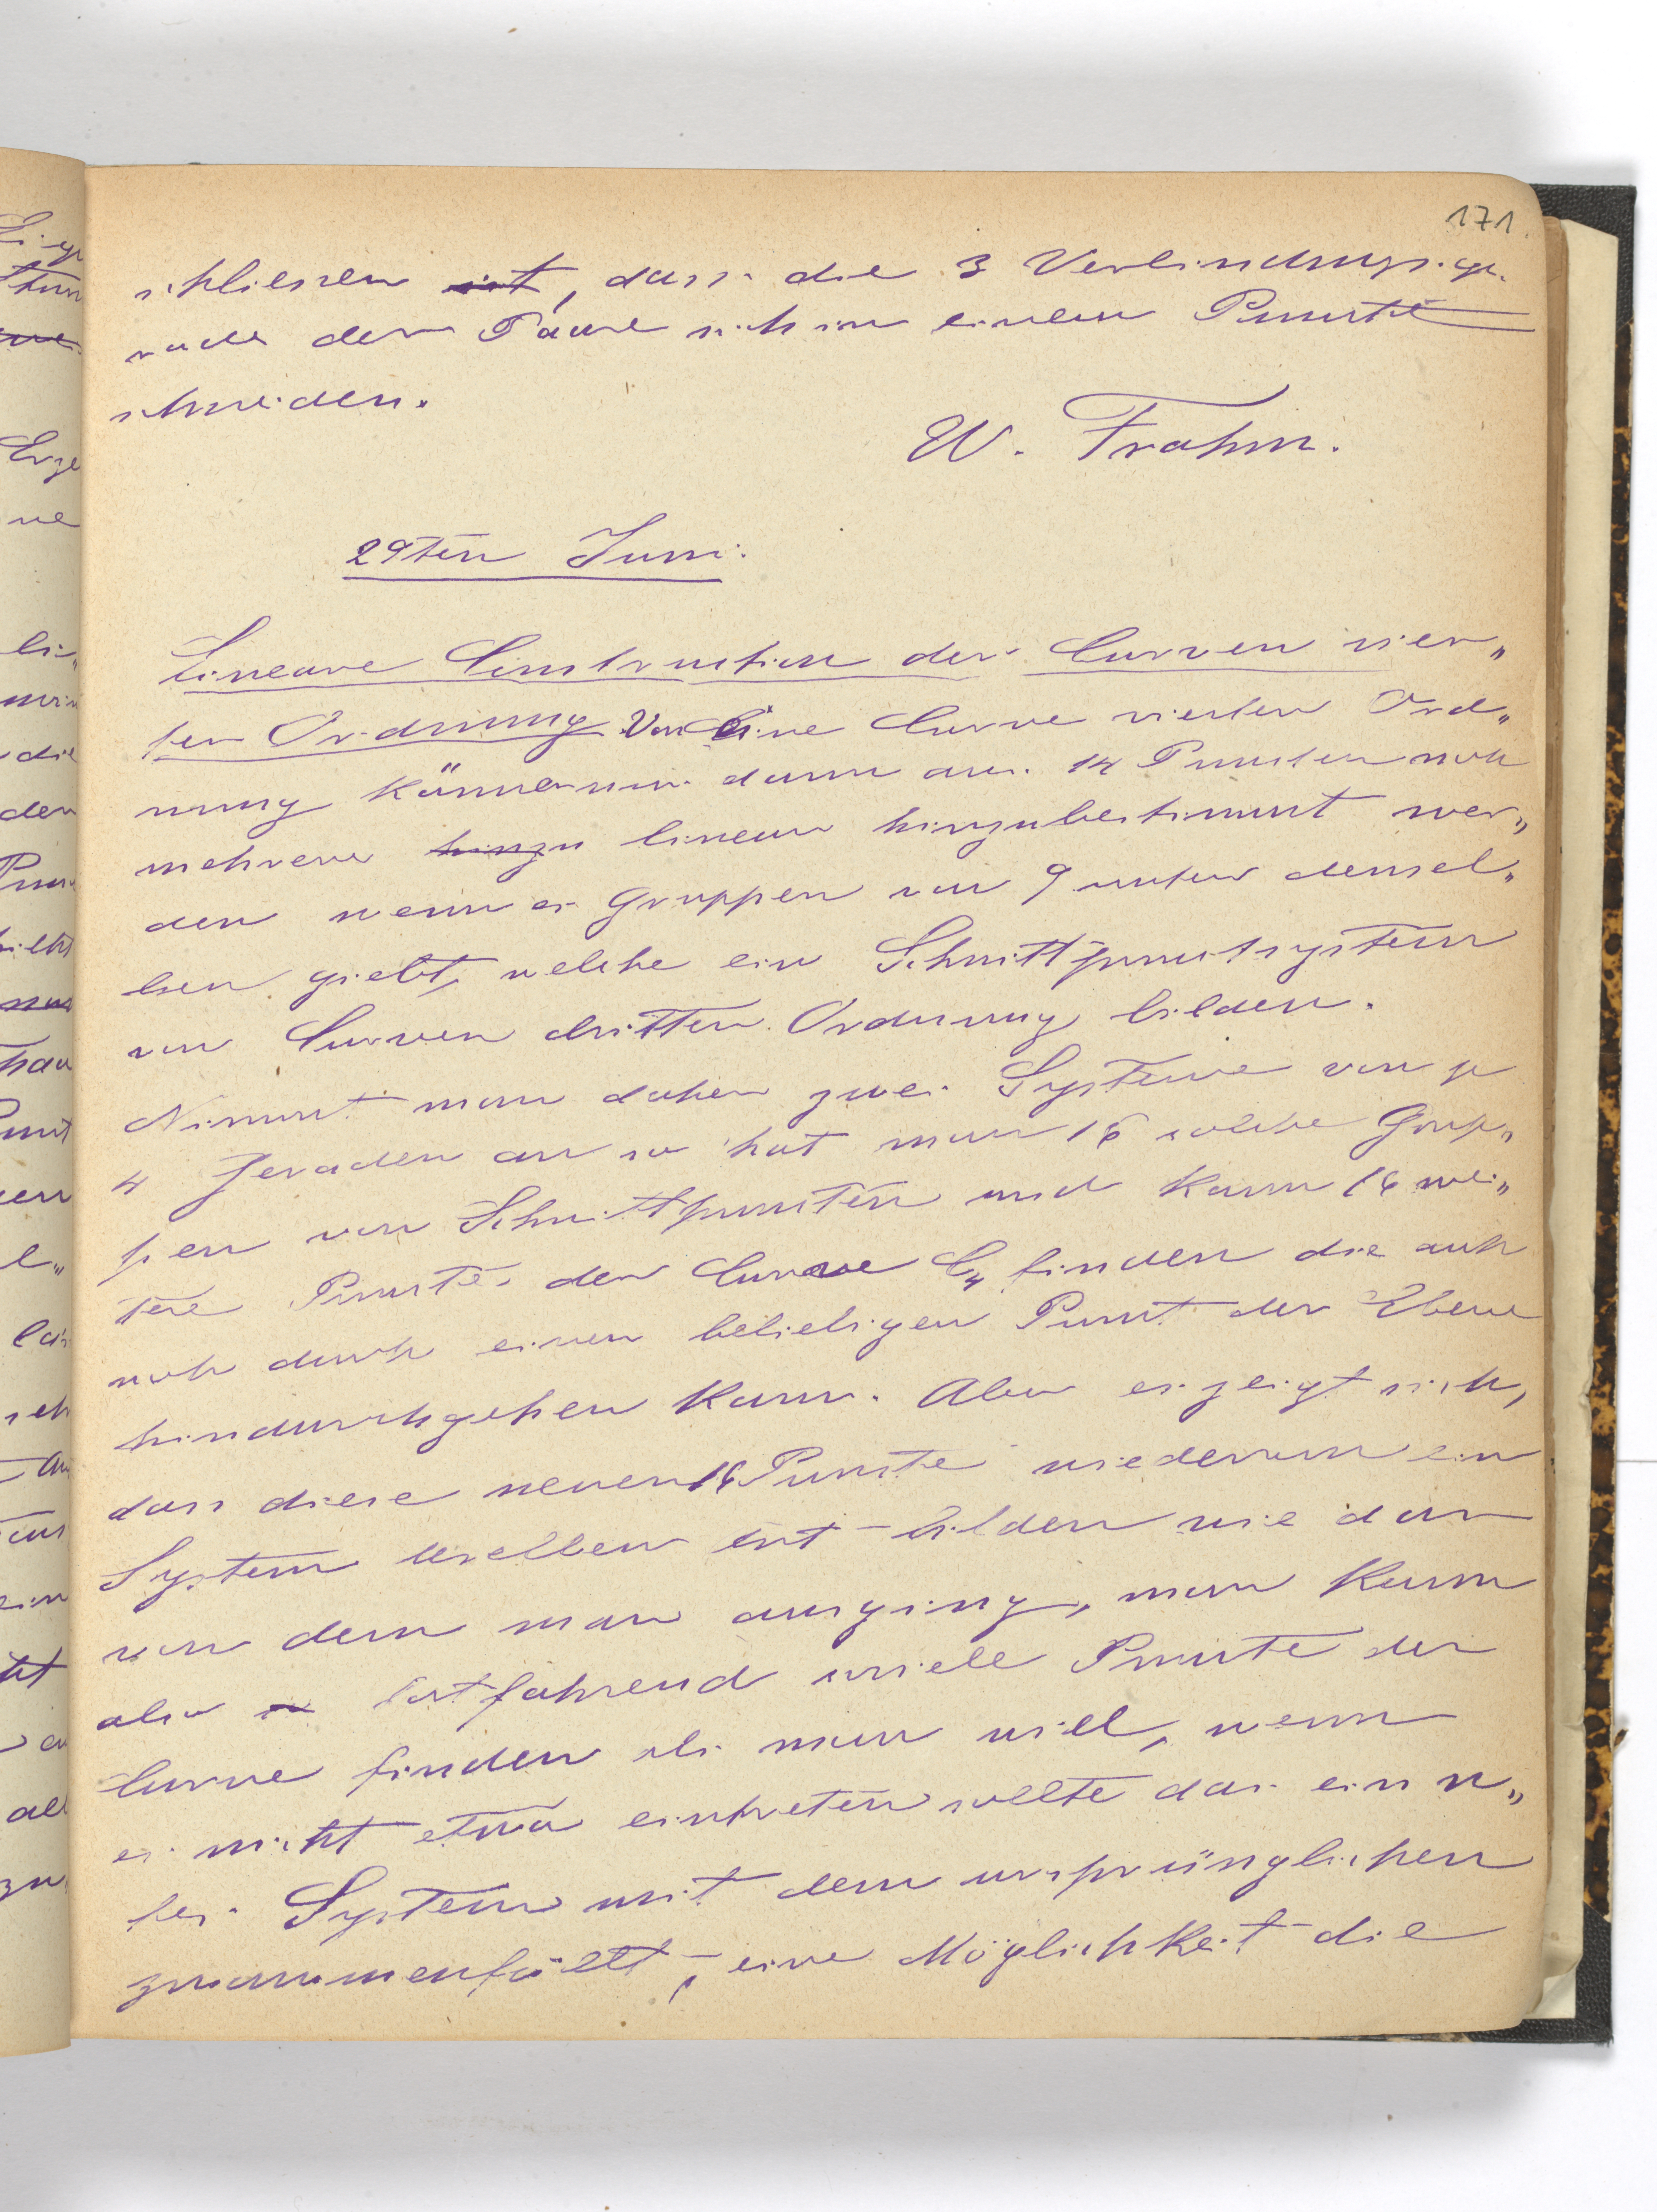 171.
schliessen ist, dass die 3 Verbindungsge-
rade der Paare sich in einem Puncte
schneiden.
W. Frahm.
29ten Juni.
Lineare Construction der Curven vier„
ter Ordnung Von Eine Curve vierter Ord„
nung können nur dann aus 14 Puncten noch
mehrere hinzu linear hinzubestimmt wer„
den wenn es Gruppen von 9 unter densel„
ben giebt, welche ein Schnittpunctsystem
von Curven dritter Ordnung bilden.
Nimmt man daher zwei Systeme von je
4 Geraden an so hat man 16 solche Grup„
pen von Schnittpuncten und kann 16 wei„
tere Puncte der Curve C4 finden die auch
noch durch einen beliebigen Punct der Ebene
hindurchgehen kann. Aber es zeigt sich,
dass diese neuen 16 Puncte wiederum ein
System derselben Art bilden wie das
von dem man ausging, man kann
also fortfahrend soviele Puncte der
Curve finden als man will, wenn
es nicht etwa eintreten sollte das ein n„
tes System mit dem ursprünglichen
zusammenfällt, eine Möglichkeit die